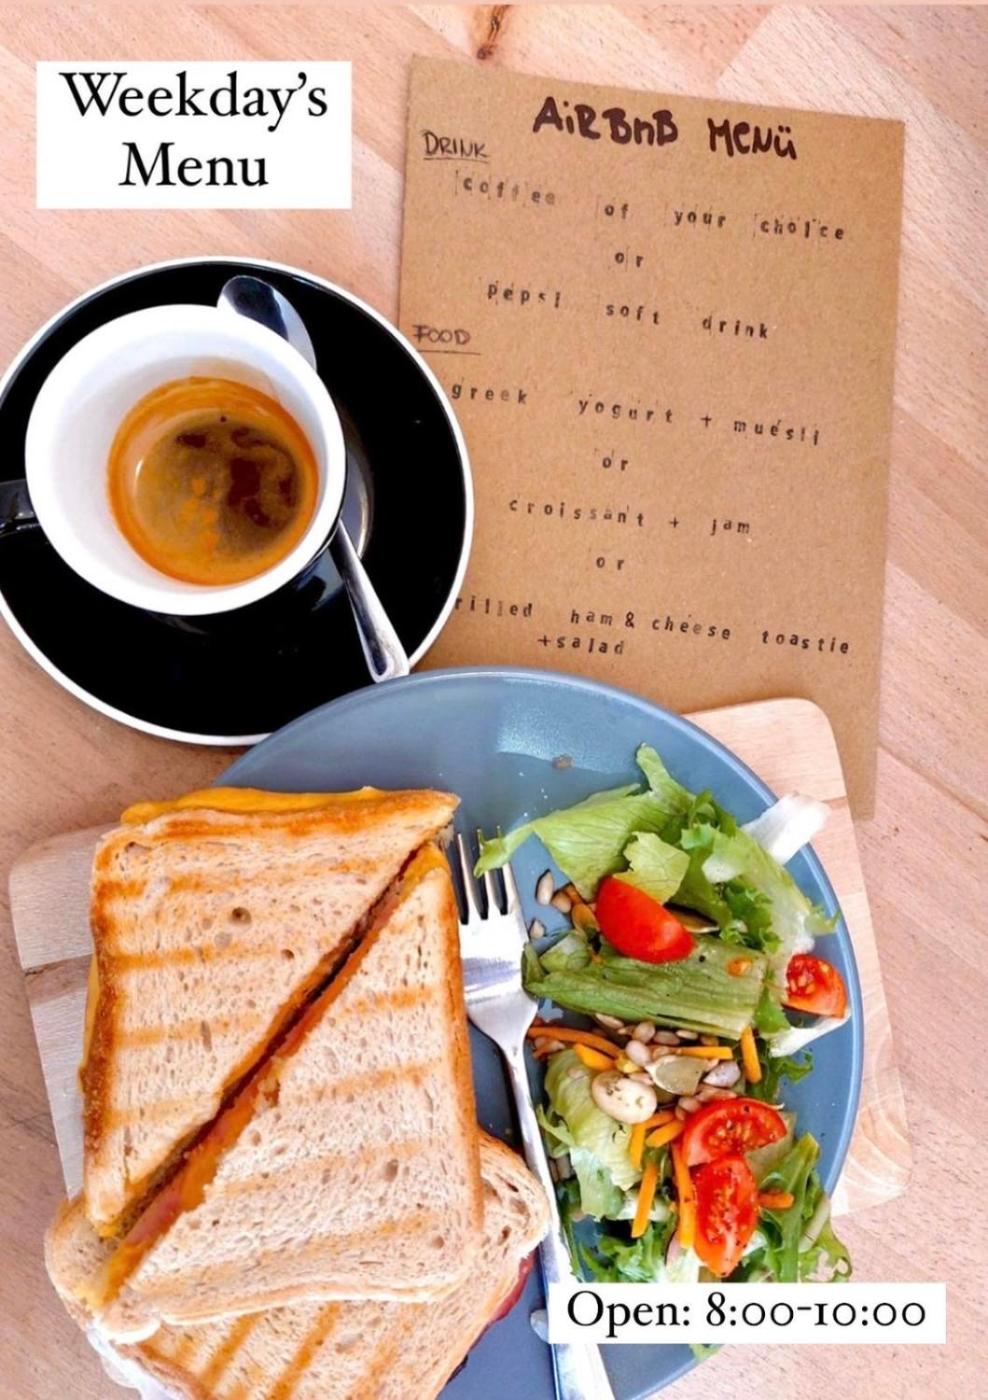 Weekday's
Menu
AiRBnB MENÜ
DRINK
coffee of your choice
or
pepsi soft drink
FOOD
greek yogurt + muesli
or
croissant + jam
or
rilled ham & cheese toastie
+salad
Open: 8:00-10:00